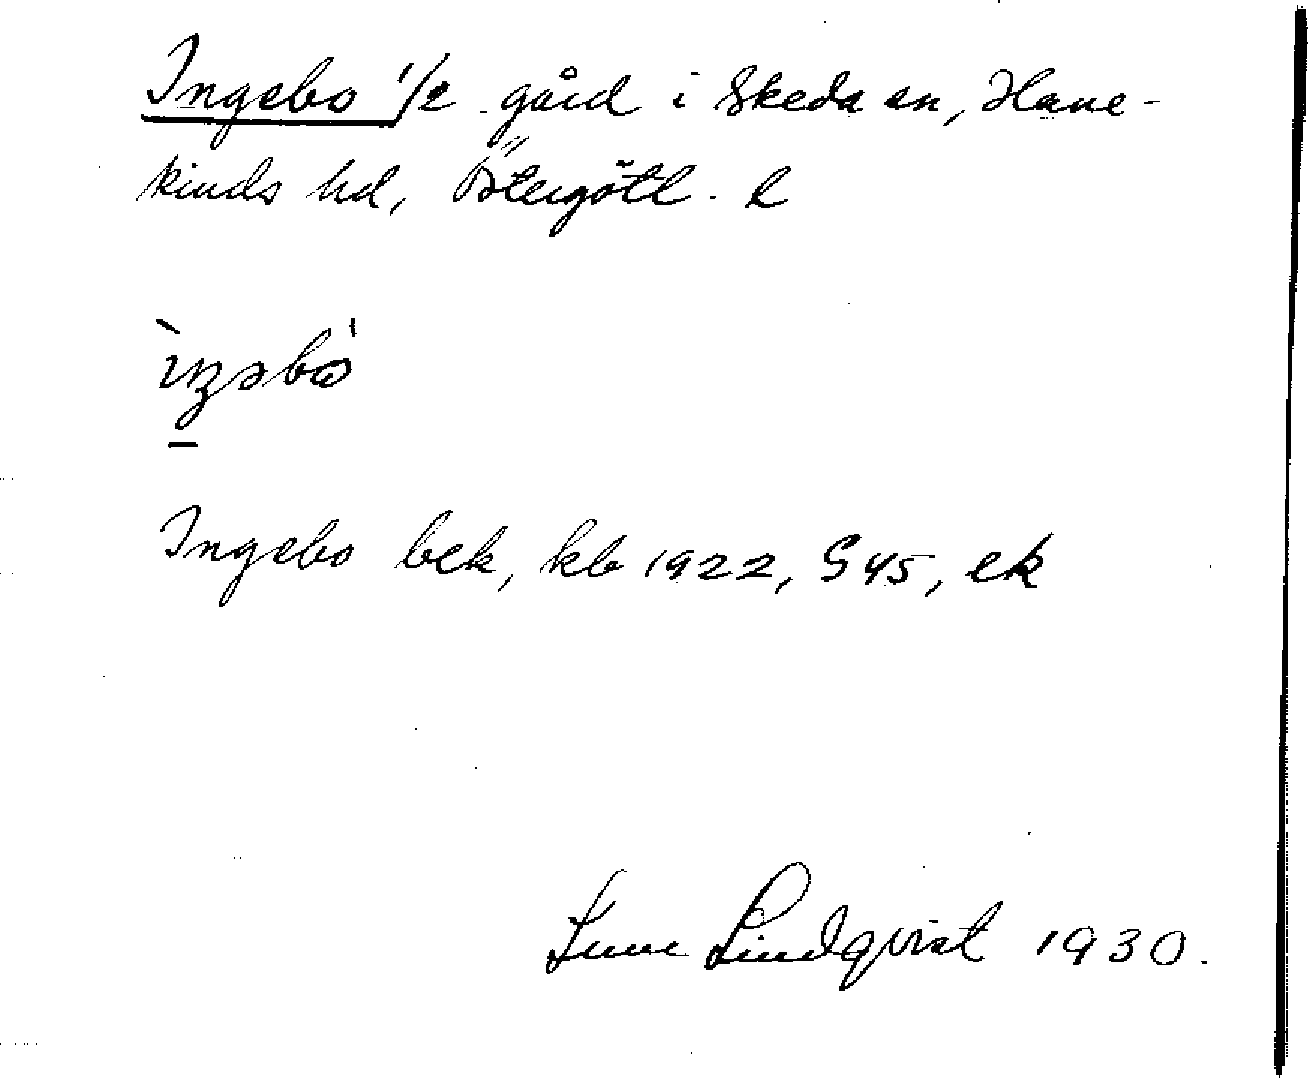 Ingebo 1/2 gård i Skeda sn, Hane-
kinds hd, Östergötl. l
Ingebo bek, kb 1922, S 45, ek
Sune Lindqvist 1930.